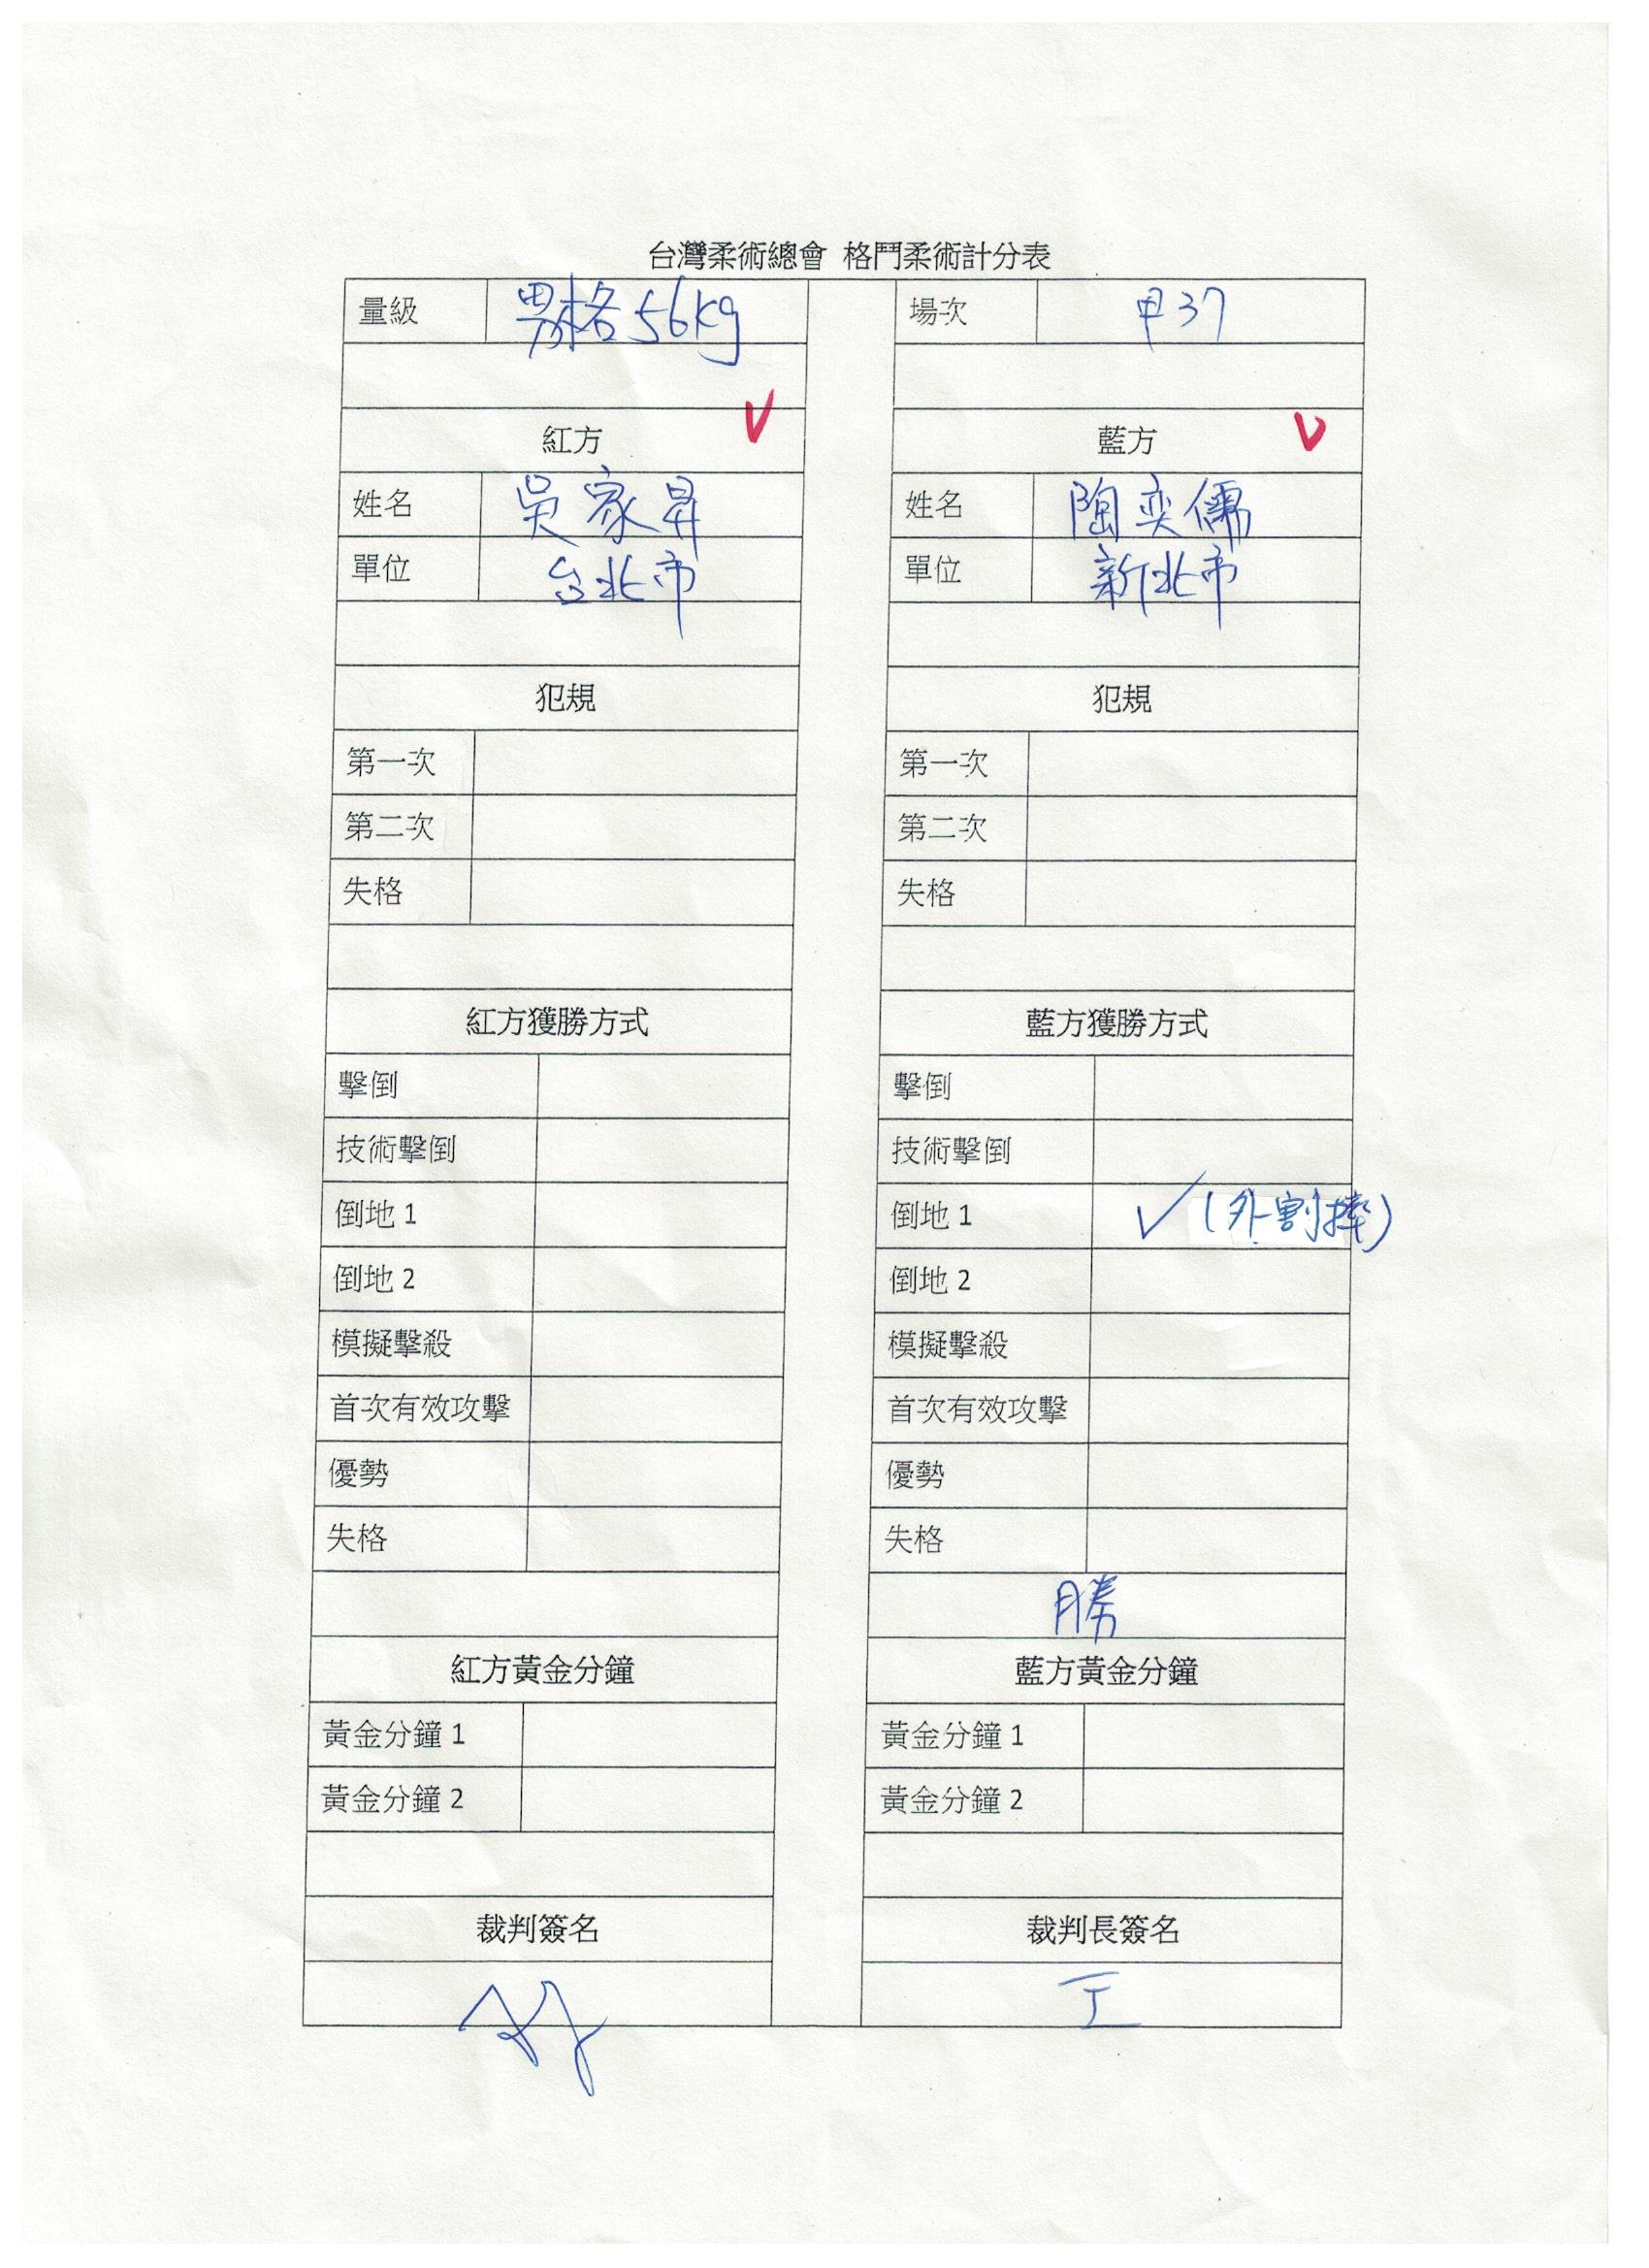 台灣柔術總會 格鬥柔術計分表
量級 男格56kg 場次 甲37
紅方 V 藍方 V
姓名 吳家昇 姓名 陶奕儒
單位 台北市 單位 新北市
犯規 犯規
第一次 第一次
第二次 第二次
失格 失格
紅方獲勝方式 藍方獲勝方式
擊倒 擊倒
技術擊倒 技術擊倒
倒地 1 倒地 1 ✓(外割摔)
倒地 2 倒地 2
模擬擊殺 模擬擊殺
首次有效攻擊 首次有效攻擊
優勢 優勢
失格 失格
勝
紅方黃金分鐘 藍方黃金分鐘
黃金分鐘 1 黃金分鐘 1
黃金分鐘 2 黃金分鐘 2
裁判簽名 裁判長簽名